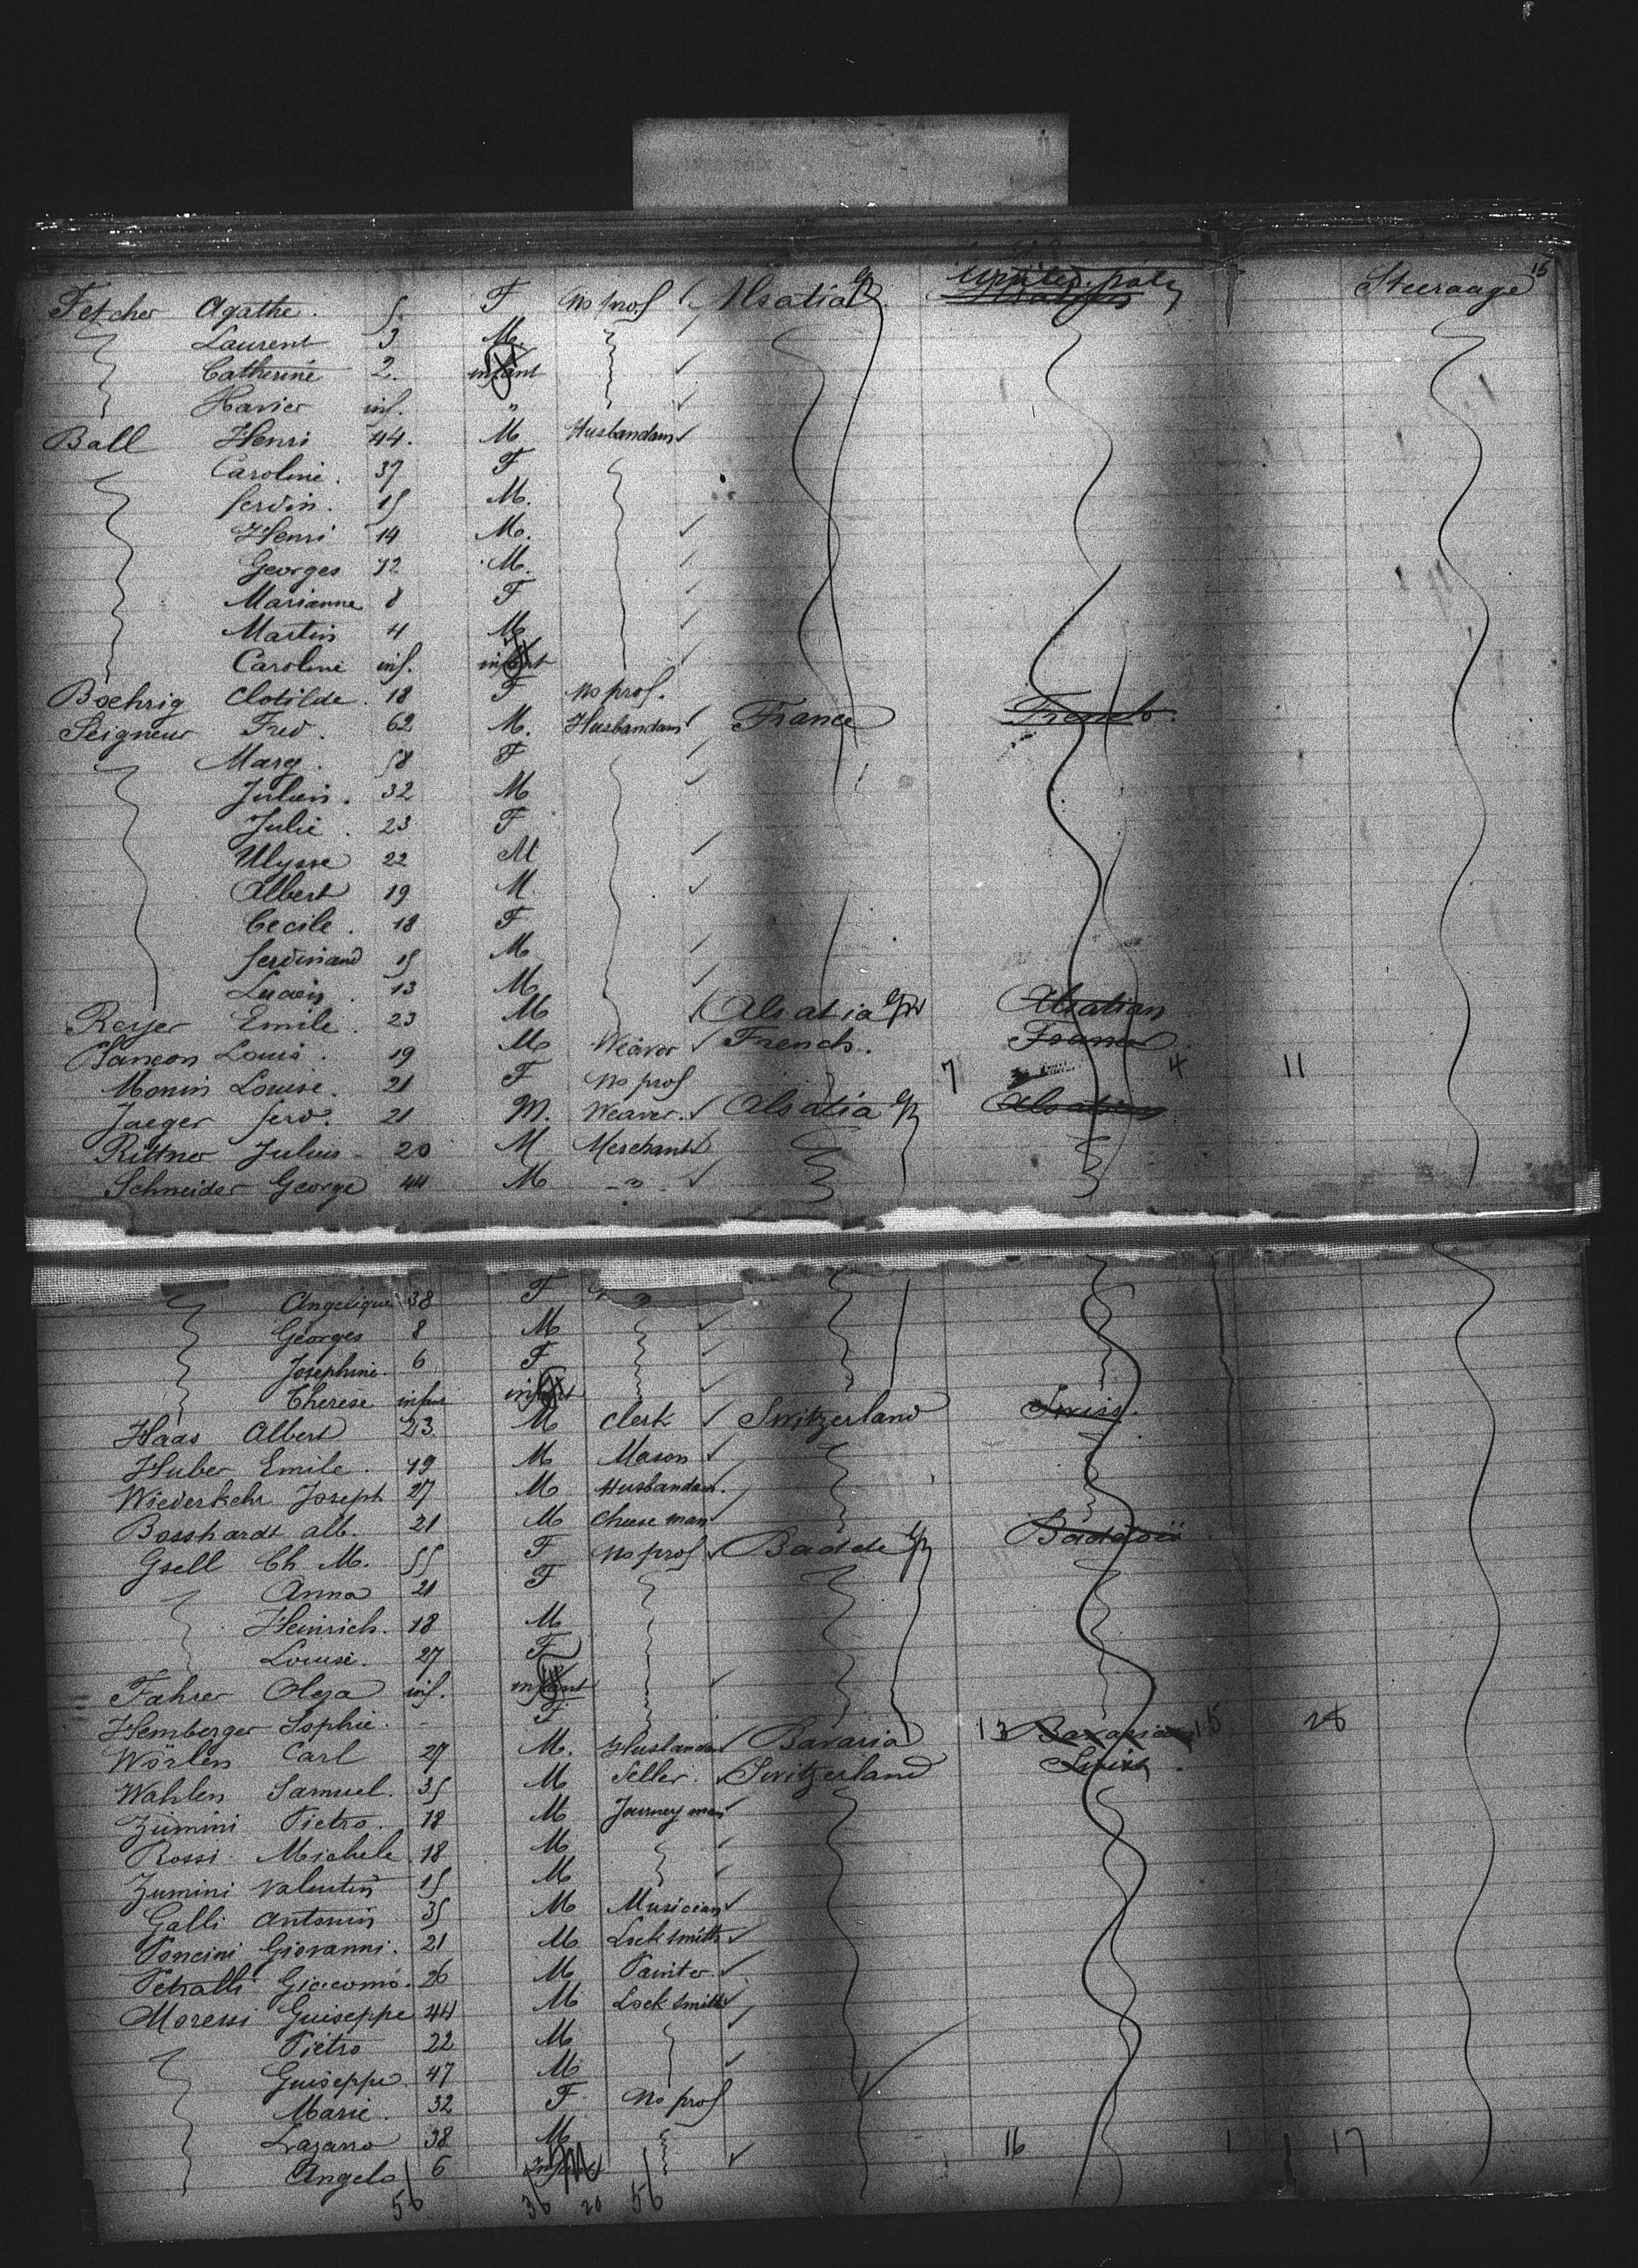 15
Fetcher Agathe. 5. F No prof Alsatia Steeraage
Laurent 3 M.
Catherine 2. infant
Xavier inf. "
Ball Henri 44. M Husbandam
Caroline. 37 F
ferdin. 15 M.
Henri 14 M.
Georges 12 M.
Marianne 8 F
Martin 4 M
Caroline inf. infant
Boehrig Clotilde. 18 F No prof.
Seigneur Fred. 62 M. Husbandam France French.
Marg. 58 F
Julien. 32 M
Julie. 23 F
Ulysse 22 M
Albert 19 M.
Cecile. 18 F
ferdinand 15 M
Lucien. 13 M
Reyer Emile. 23 M Alsatia Alsatian
Louis. 19 M Weaver French. France
Monin Louise. 21 F No prof 7 4 11
Jaeger ferd. 21 M. Weaver. Alsatia Alsatian
Rittner Julius - 20 M Merchant
Schneider George 44 M - " -
Angelique 38 F "
Georges 8 M
Josephine. 6 F
Therese infant
Haas Albert 23. M Clerk Switzerland Swiss.
Huber Emile. 19 M Mason
Wiederkehr Joseph 27 M Husbandam.
Bosshardt alb. 21 M Cheese man
Gsell Ch M. 55 F No prof. Badde
Anna 21 F
Heinrich. 18 M
Louise. 27 F
Fahrer Olga inf. infant
Hemberger Sophie. - F
Wörlen Carl 27 M. Husbandam Bavaria 13 Bavaria 15 28
Wahlen Samuel. 35 M Seller. Switzerland Swiss.
Zumini Pietro. 18 M Journey man
Rossi Michele 18 M
Zumini Valentin 15 M
Galli Antonin 35 M Musician
Poncini Giovanni. 21 M Lock smith
Petralli Giacomo. 26 M Painter.
Moressi Guiseppe 44 M Lock smith
Pietro 22 M
Guiseppe. 47 M
Marie. 32 F No prof
Lazarro 38 M
Angelo 6 M 16 1 17
56 36 20 56